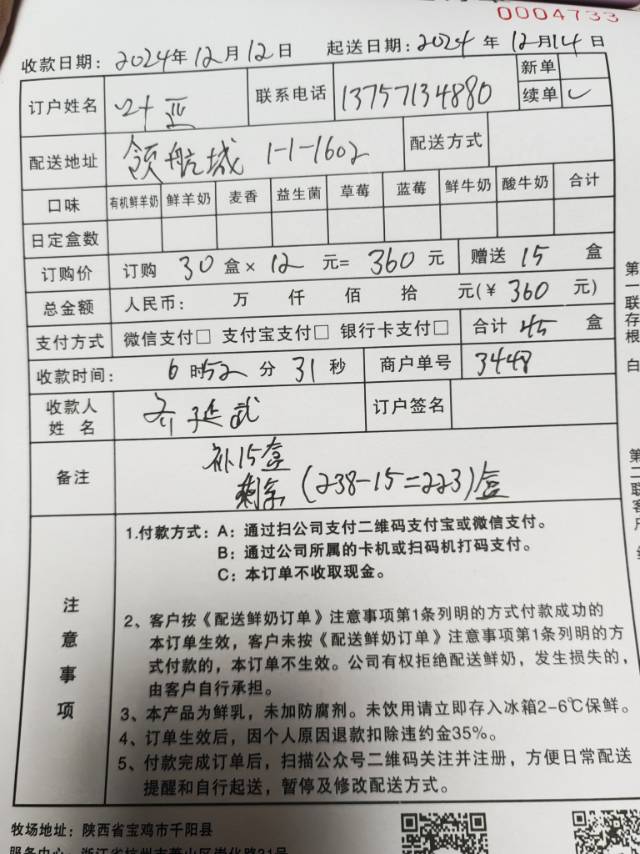 0004733
收款日期：2024年12月12日 起送日期：2024年12月14日
订户姓名 叶亚 联系电话 13757134880 新单
续单 ✓
配送地址 领航城 1-1-1602 配送方式
口味 有机鲜羊奶 鲜羊奶 麦香 益生菌 草莓 蓝莓 鲜牛奶 酸牛奶 合计
日定盒数
订购价 订购 30 盒× 12 元= 360 元 赠送 15 盒
总金额 人民币： 万 仟 佰 拾 元(￥360 元)
支付方式 微信支付□ 支付宝支付□ 银行卡支付□ 合计 45 盒
收款时间： 6时52分31秒 商户单号 3448
收款人
姓 名 齐延武 订户签名
备注 补15盒
剩余(238-15=223)盒
注意事项
1.付款方式：A：通过扫公司支付二维码支付宝或微信支付。
B：通过公司所属的卡机或扫码机打码支付。
C：本订单不收取现金。
2、客户按《配送鲜奶订单》注意事项第1条列明的方式付款成功的
本订单生效，客户未按《配送鲜奶订单》注意事项第1条列明的方
式付款的，本订单不生效。公司有权拒绝配送鲜奶，发生损失的，
由客户自行承担。
3、本产品为鲜乳，未加防腐剂。未饮用请立即存入冰箱2-6℃保鲜。
4、订单生效后，因个人原因退款扣除违约金35%。
5、付款完成订单后，扫描公众号二维码关注并注册，方便日常配送
提醒和自行起送，暂停及修改配送方式。
牧场地址：陕西省宝鸡市千阳县
服务中心：浙江省杭州市萧山区崇化路31号
第一联存根 白
第二联客户